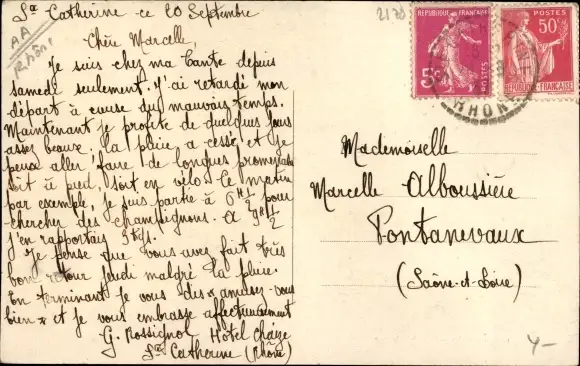 Ste Catherine ce 20 Septembre
2170
AA
Rhône
Chère Marcelle,
Je suis chez ma tante depuis
samedi seulement. J'ai retardé mon
départ à cause du mauvais temps.
Maintenant je profite de quelques jours
assez beaux. La pluie a cessé et je
peux aller faire de longues promenades
soit à pied, soit en vélo. Ce matin
par exemple, je suis partie à 6H 1/2 pour
chercher des champignons. A 9H 1/2
j'en rapportais
Je pense que vous avez fait très
bon retour jeudi malgré la pluie.
En terminant je vous dis « amusez-vous
bien » et je vous embrasse affectueusement
G. Rossignol Hôtel
Ste Catherine (Rhône)
REPUBLIQUE FRANÇAISE
5c
POSTES
POSTES
50c
REPUBLIQUE FRANÇAISE
RHONE
Mademoiselle
Marcelle Alboussière
Pontanevaux
(Saône-et-Loire)
4-